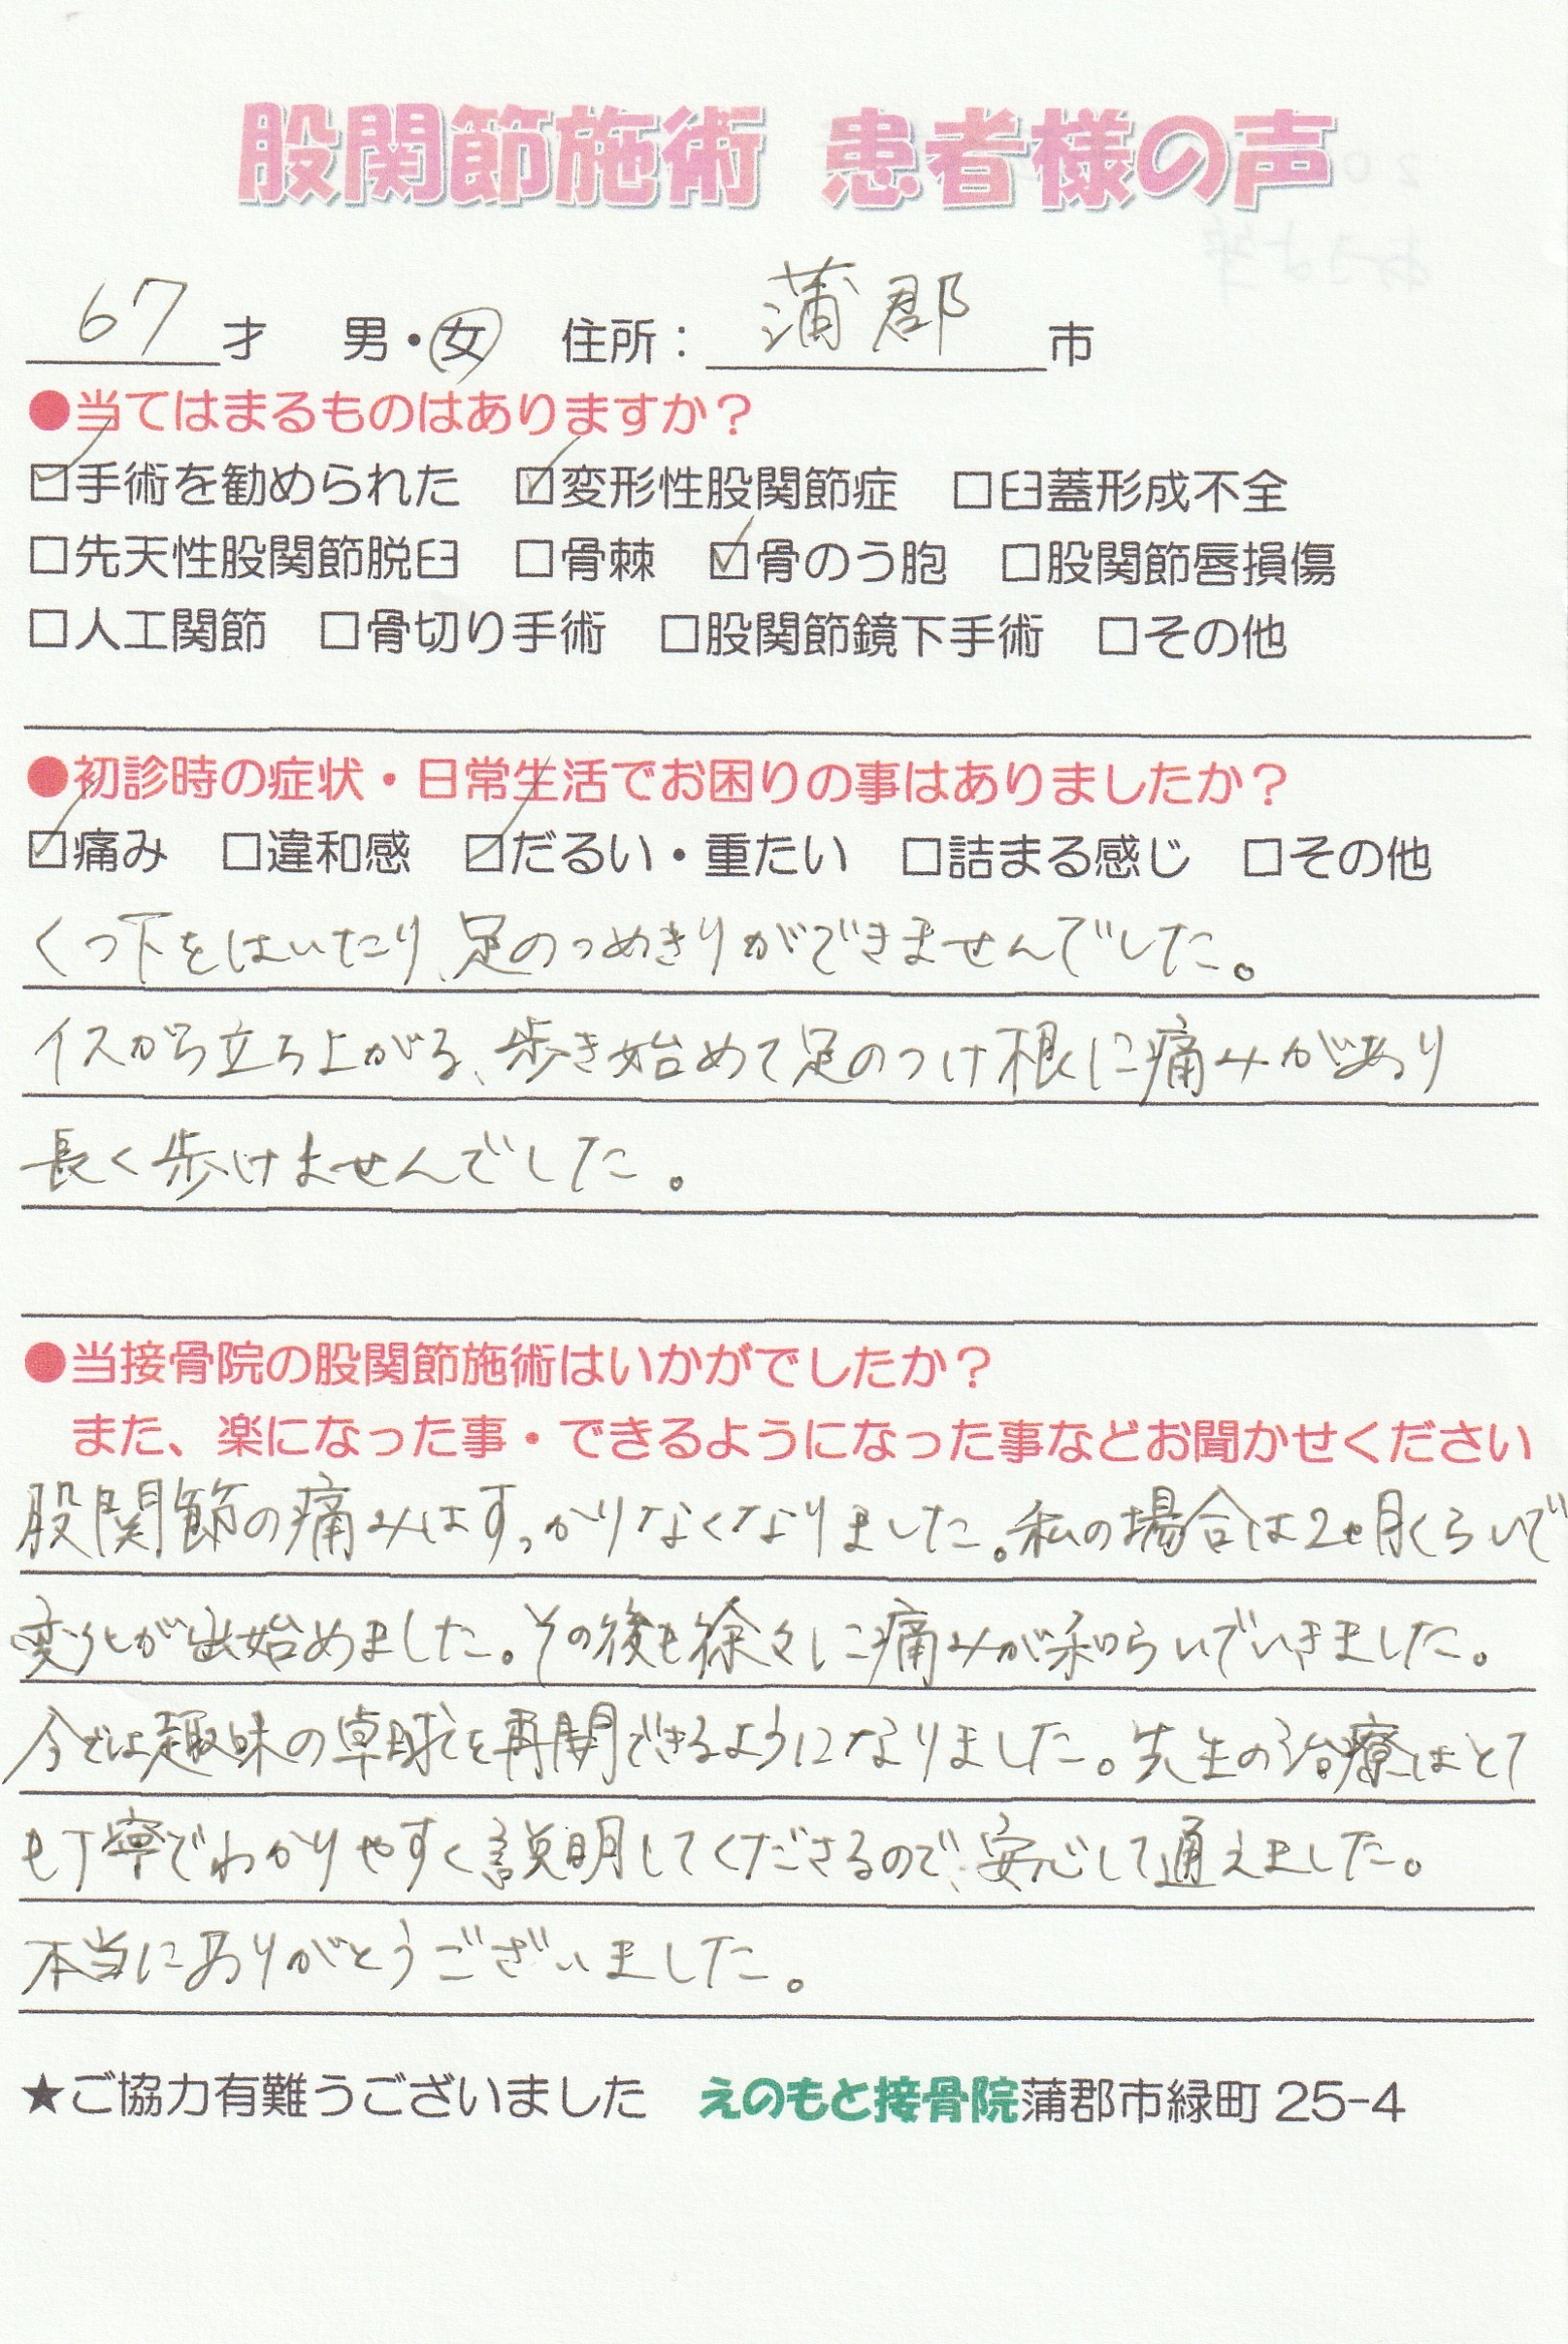 股関節施術 患者様の声
67才 男・女 住所：蒲郡市
●当てはまるものはありますか？
☑手術を勧められた ☑変形性股関節症 □臼蓋形成不全
□先天性股関節脱臼 □骨棘 ☑骨のう胞 □股関節唇損傷
□人工関節 □骨切り手術 □股関節鏡下手術 □その他
●初診時の症状・日常生活でお困りの事はありましたか？
☑痛み □違和感 ☑だるい・重たい □詰まる感じ □その他
くつ下をはいたり、足のつめきりができませんでした。
イスから立ち上がる、歩き始めて足のつけ根に痛みがあり
長く歩けませんでした。
●当接骨院の股関節施術はいかがでしたか？
また、楽になった事・できるようになった事などお聞かせください
股関節の痛みはすっかりなくなりました。私の場合は2ヶ月くらいで
変化が出始めました。その後も徐々に痛みが和らいでいきました。
今では趣味の卓球を再開できるようになりました。先生の治療はとて
も丁寧でわかりやすく説明してくださるので、安心して通えました。
本当にありがとうございました。
★ご協力有難うございました えのもと接骨院蒲郡市緑町 25-4